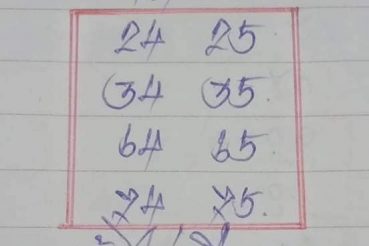 24 25
34 35
64 65
74 75